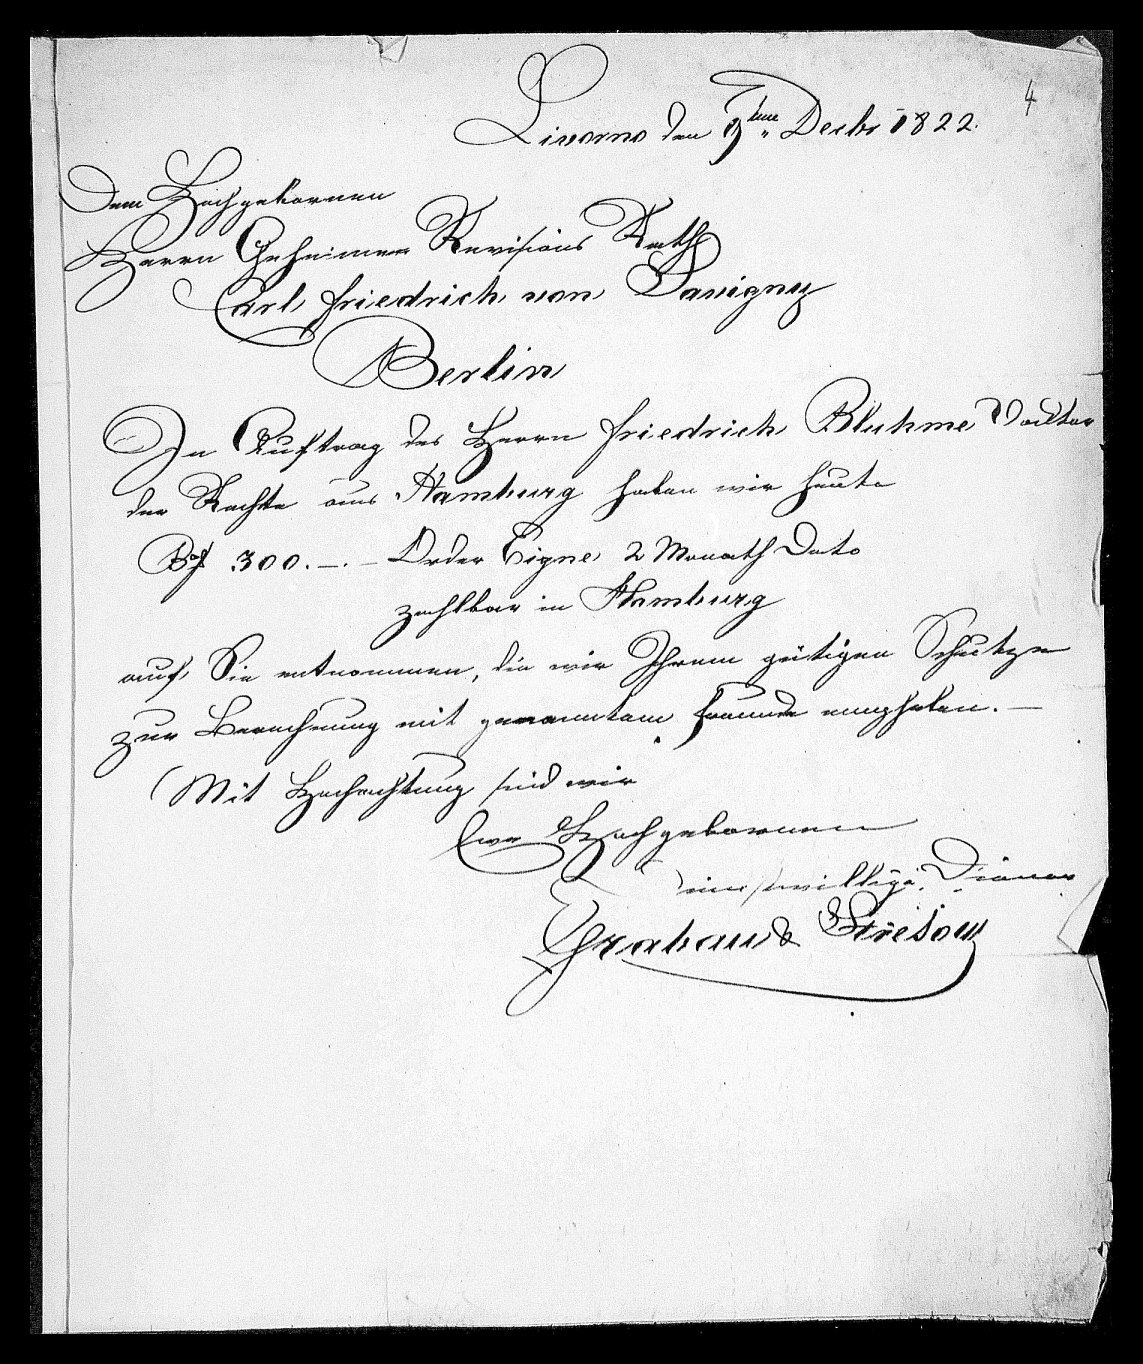 4
Livorno den 9tene Decbr 1822.
Dem Hochgebornen
Herrn Geheimen Revisions Rath
Carl Friedrich von Savigny
Berlin
In Auftrag des Herrn Friedrich Bluhme Doktor
der Rechte aus Hamburg haben wir heute
300.—.— Order Eigne 2 Monath Dato
zahlbar in Hamburg
auf Sie entnommen, die wir Ihrem gütigen Schutze
zur Berechnung mit genanntem Freunde empfehlen.—
Mit Hochachtung sind wir
Ewr Hochgebornen
Diener
Grabau & Stresow